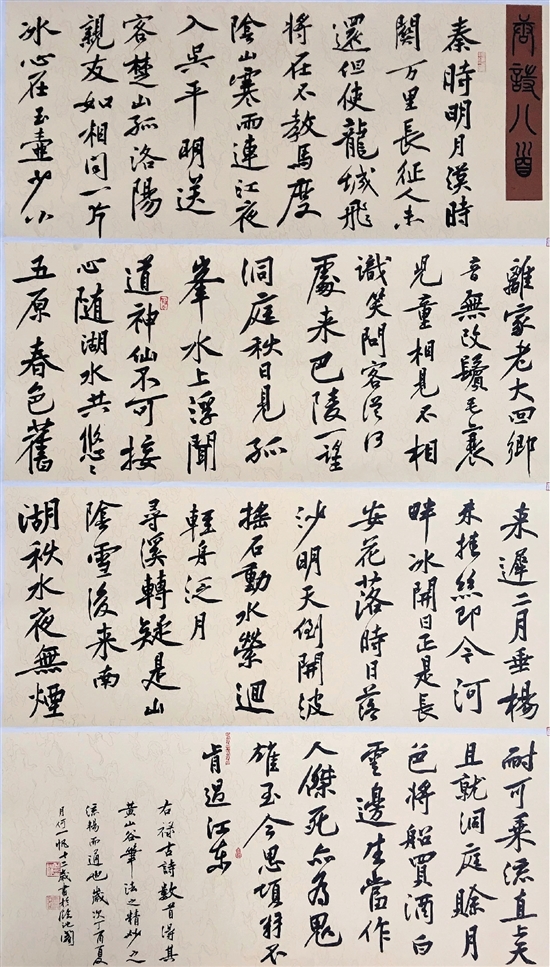 唐詩八首
秦時明月漢時
關万里長征人未
還但使龍城飛
將在不教馬度
陰山寒雨連江夜
入吳平明送
客楚山孤洛陽
親友如相問一片
冰心在玉壺少小
離家老大回鄉
音無改鬢毛衰
児童相見不相
識笑問客從何
處来巴陵一望
洞庭秋日見孤
峯水上浮聞
道神仙不可接
心隨湖水共悠々
五原春色舊
来遲二月垂楊
未掛絲即今河
畔冰開日正是長
安花落時日落
沙明天倒開波
搖石動水縈迴
輕舟泛月
尋溪轉疑是山
陰雪後来南
湖秋水夜無煙
耐可乘流直上天
且就洞庭賒月
色將船買酒白
雲邊生當作
人傑死亦為鬼
雄至今思項羽不
肯過江東
右錄古詩數首得其
黃山谷筆法之精妙之
流暢而通也歲次丁酉夏
月何一帆十二歲書於池園